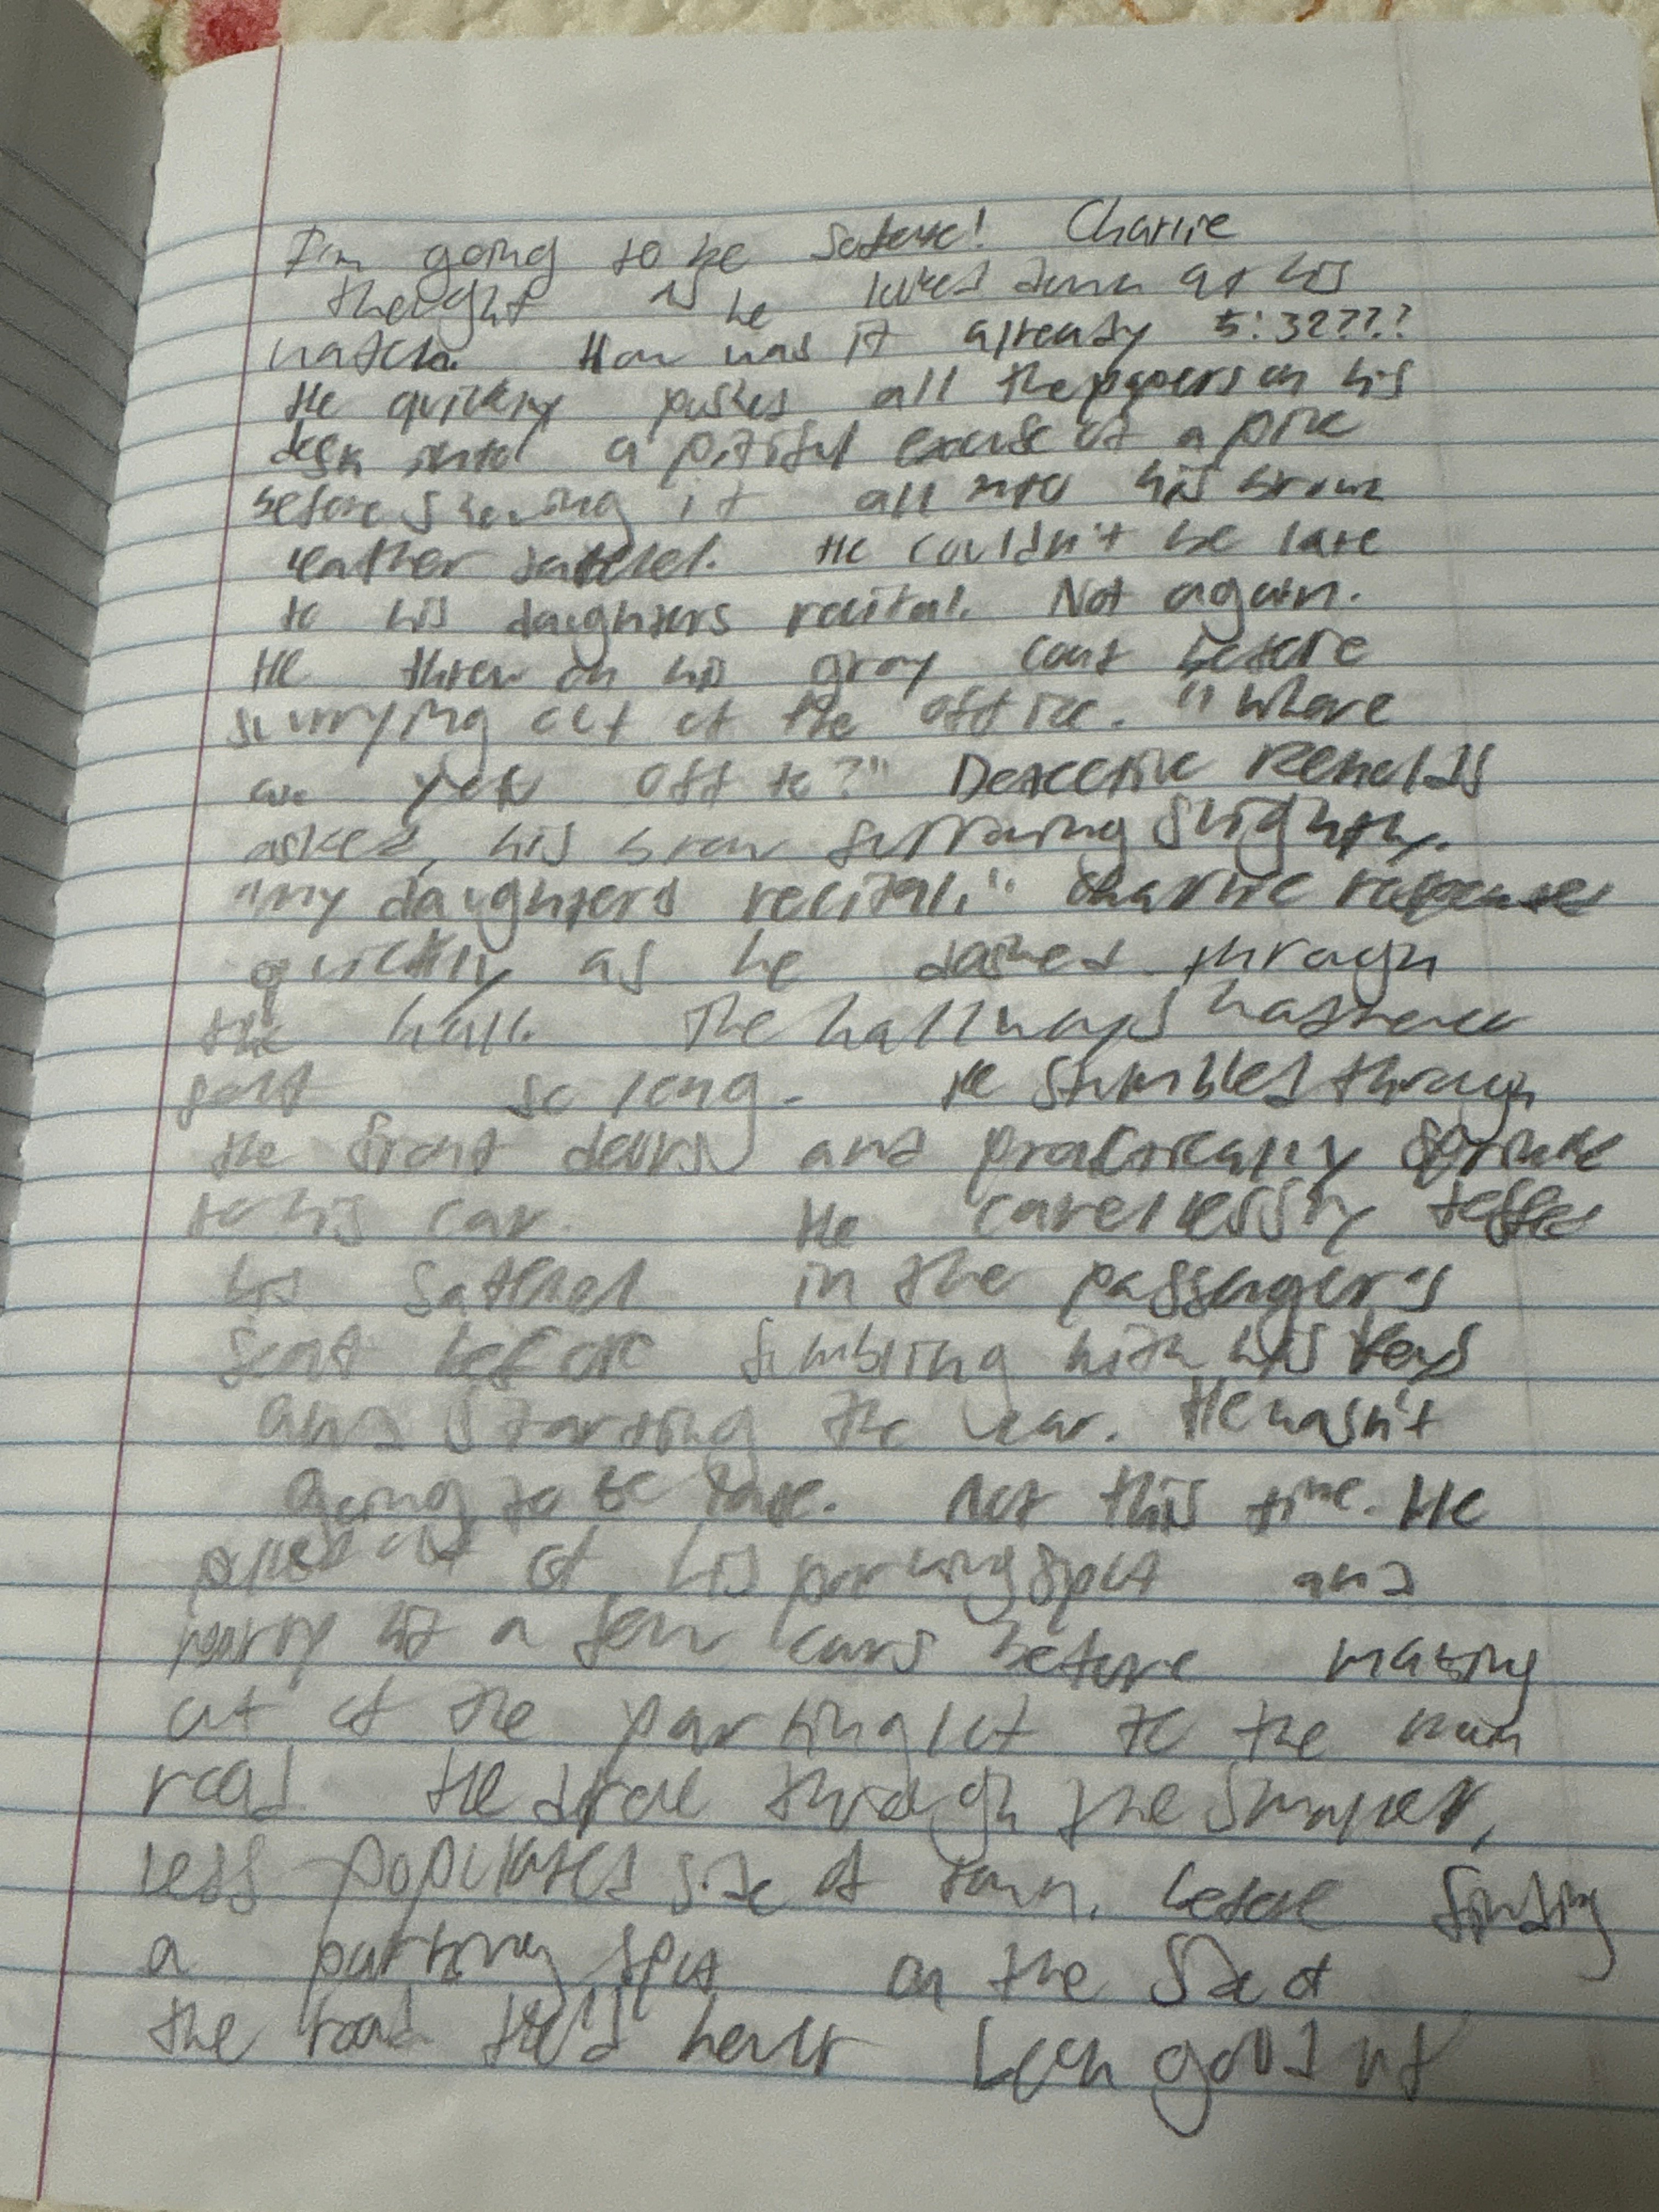 I'm going to be so late! Charlie
thought as he looked down at his
watch. How was it already 5:32????
He quickly pushes all the papers on his
desk into a pitiful excuse of a pile
before shoving it all into his brown
leather satchel. He couldn't be late
to his daughters recital. Not again.
He threw on his gray coat before
scurrying out of the office. "Where
are you off to?" Detective Renolds
asked, his brow furrowing slightly.
"my daughters recital." Charlie responded
quickly as he dashed through
the hall. The hallways had never
felt so long. He stumbled through
the front doors and practically sprinted
to his car. He carelessly tossed
his satchel in the passenger's
seat before fumbling with his keys
and starting the car. He wasn't
going to be late. Not this time. He
pulled out of his parking spot and
nearly hit a few cars before making
out of the parking lot to the main
road He drove through the smaller,
less populated side of town, before finding
a parking spot on the side of
the road He'd never been good at